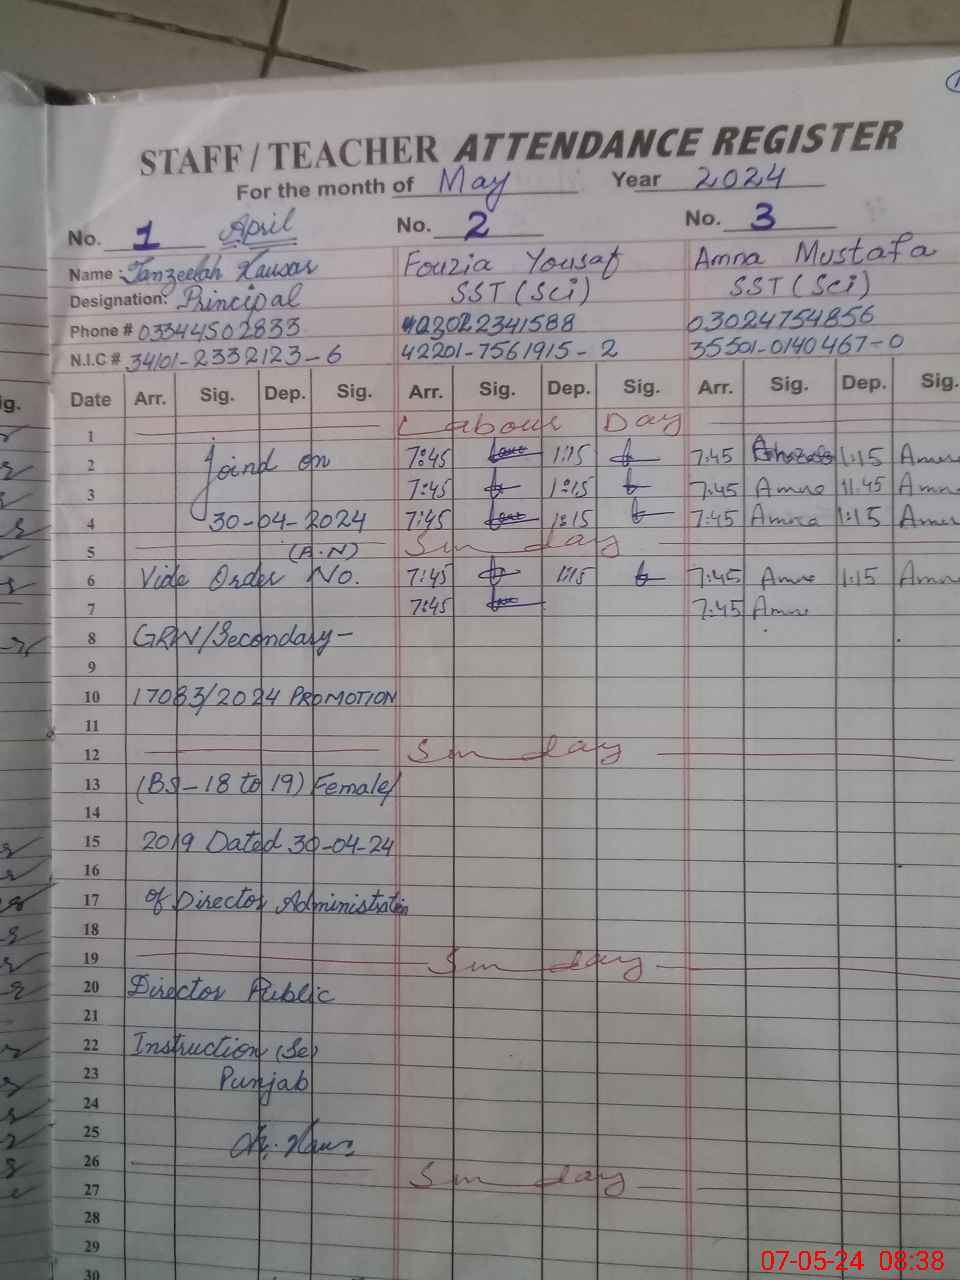 STAFF / TEACHER ATTENDANCE REGISTER
For the month of May Year 2024
No. 1 April No. 2 No. 3
Name : Tanzeelah Kausar Fouzia Yousaf Amna Mustafa
Designation: Principal SST (Sci) SST (Sci)
Phone # 03344502833 03022341588 03024754856
N.I.C # 34101-2332123-6 42201-7561915-2 35501-0140467-0
Date Arr. Sig. Dep. Sig. Arr. Sig. Dep. Sig. Arr. Sig. Dep. Sig.
1 Labour Day
2 Joind on 7:45 1:15 7:45 1:15 Amna
3 7:45 1:15 7:45 Amna 11.45 Amna
4 30-04-2024 7:45 1:15 7:45 Amna 1:15 Amna
5 (A.N) Sunday
6 Vide Order No. 7:45 1:15 7:45 Amna 1:15 Amna
7 7:45 7:45 Amna
8 GRW/Secondary-
9
10 17083/2024 PROMOTION
11
12 Sunday
13 (BS-18 to 19) Female/
14
15 2019 Dated 30-04-24
16
17 of Director Administration
18
19 Sunday
20 Director Public
21
22 Instruction (Se)
23 Punjab
24
25
26 Sunday
27
28
29
30
07-05-24 08:38